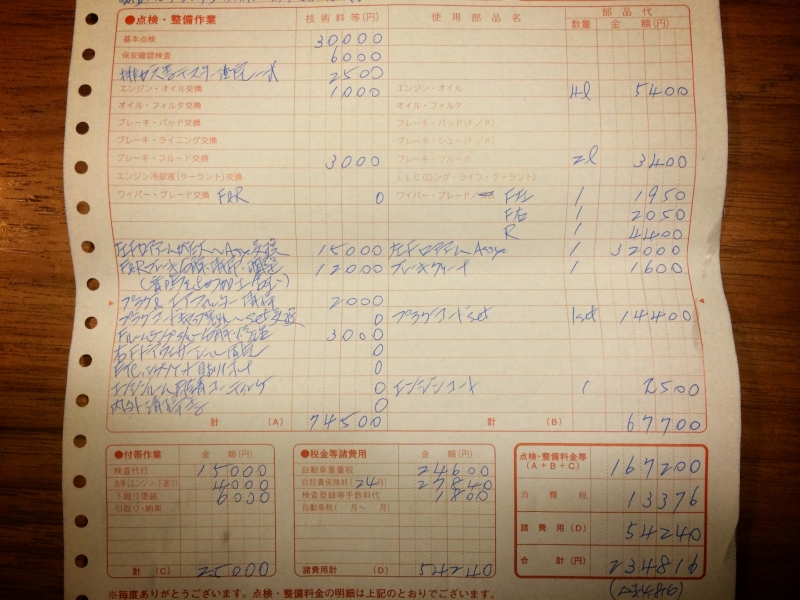 ●点検・整備作業 技術料等(円) 使用部品名 部品代
数量 金額(円)
基本点検 30000
保安確認検査 6000
2500
エンジン・オイル交換 1000 エンジン・オイル 4l 5400
オイル・フィルタ交換 オイル・フィルタ
ブレーキ・パッド交換 ブレーキ・パッド(F/R)
ブレーキ・ライニング交換 ブレーキ・シュー(F/R)
ブレーキ・フルード交換 3000 ブレーキ・フルード 2l 3400
エンジン冷却液(クーラント)交換 LLC(ロング・ライフ・クーラント)
ワイパー・ブレード交換 F&R 0 ワイパー・ブレード F左 1 1950
F右 1 2050
R 1 4400
左FロアアームASSY交換 15000 左FロアアームAssy 1 32000
F&Rブレーキ分解・清掃・調整 12000 1 1600
プラグ&エアフィルター清掃 2000
0 プラグコードset 1set 14400
3000
0
0
エンジンルーム 0 エンジンコート 1 2500
内外清掃 0
計 (A) 74500 計 (B) 67700
●付帯作業 金額(円)
検査代行 15000
洗浄(エンジン・下廻り) 4000
下廻り塗装 6000
引取り・納車
計 (C) 25000
●税金等諸費用 金額(円)
自動車重量税 24600
自賠責保険料(24月) 27840
検査登録等手数料代 1800
自動車税( 月〜 月)
諸費用計 (D) 54240
点検・整備料金等(A+B+C) 167200
消費税 13376
諸費用(D) 54240
合計(円) 234816
(△4816)
※毎度ありがとうございます。点検・整備料金の明細は上記のとおりでございます。